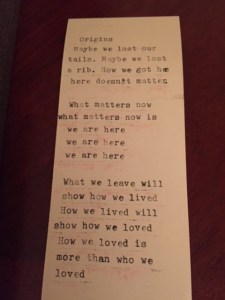 Origins
Maybe we lost our
tails. Maybe we lost
a rib. How we got
here doesn't matter
What matters now
what matters now is
we are here
we are here
we are here
What we leave will
show how we lived
How we lived will
show how we loved
How we loved is
more than who we
loved